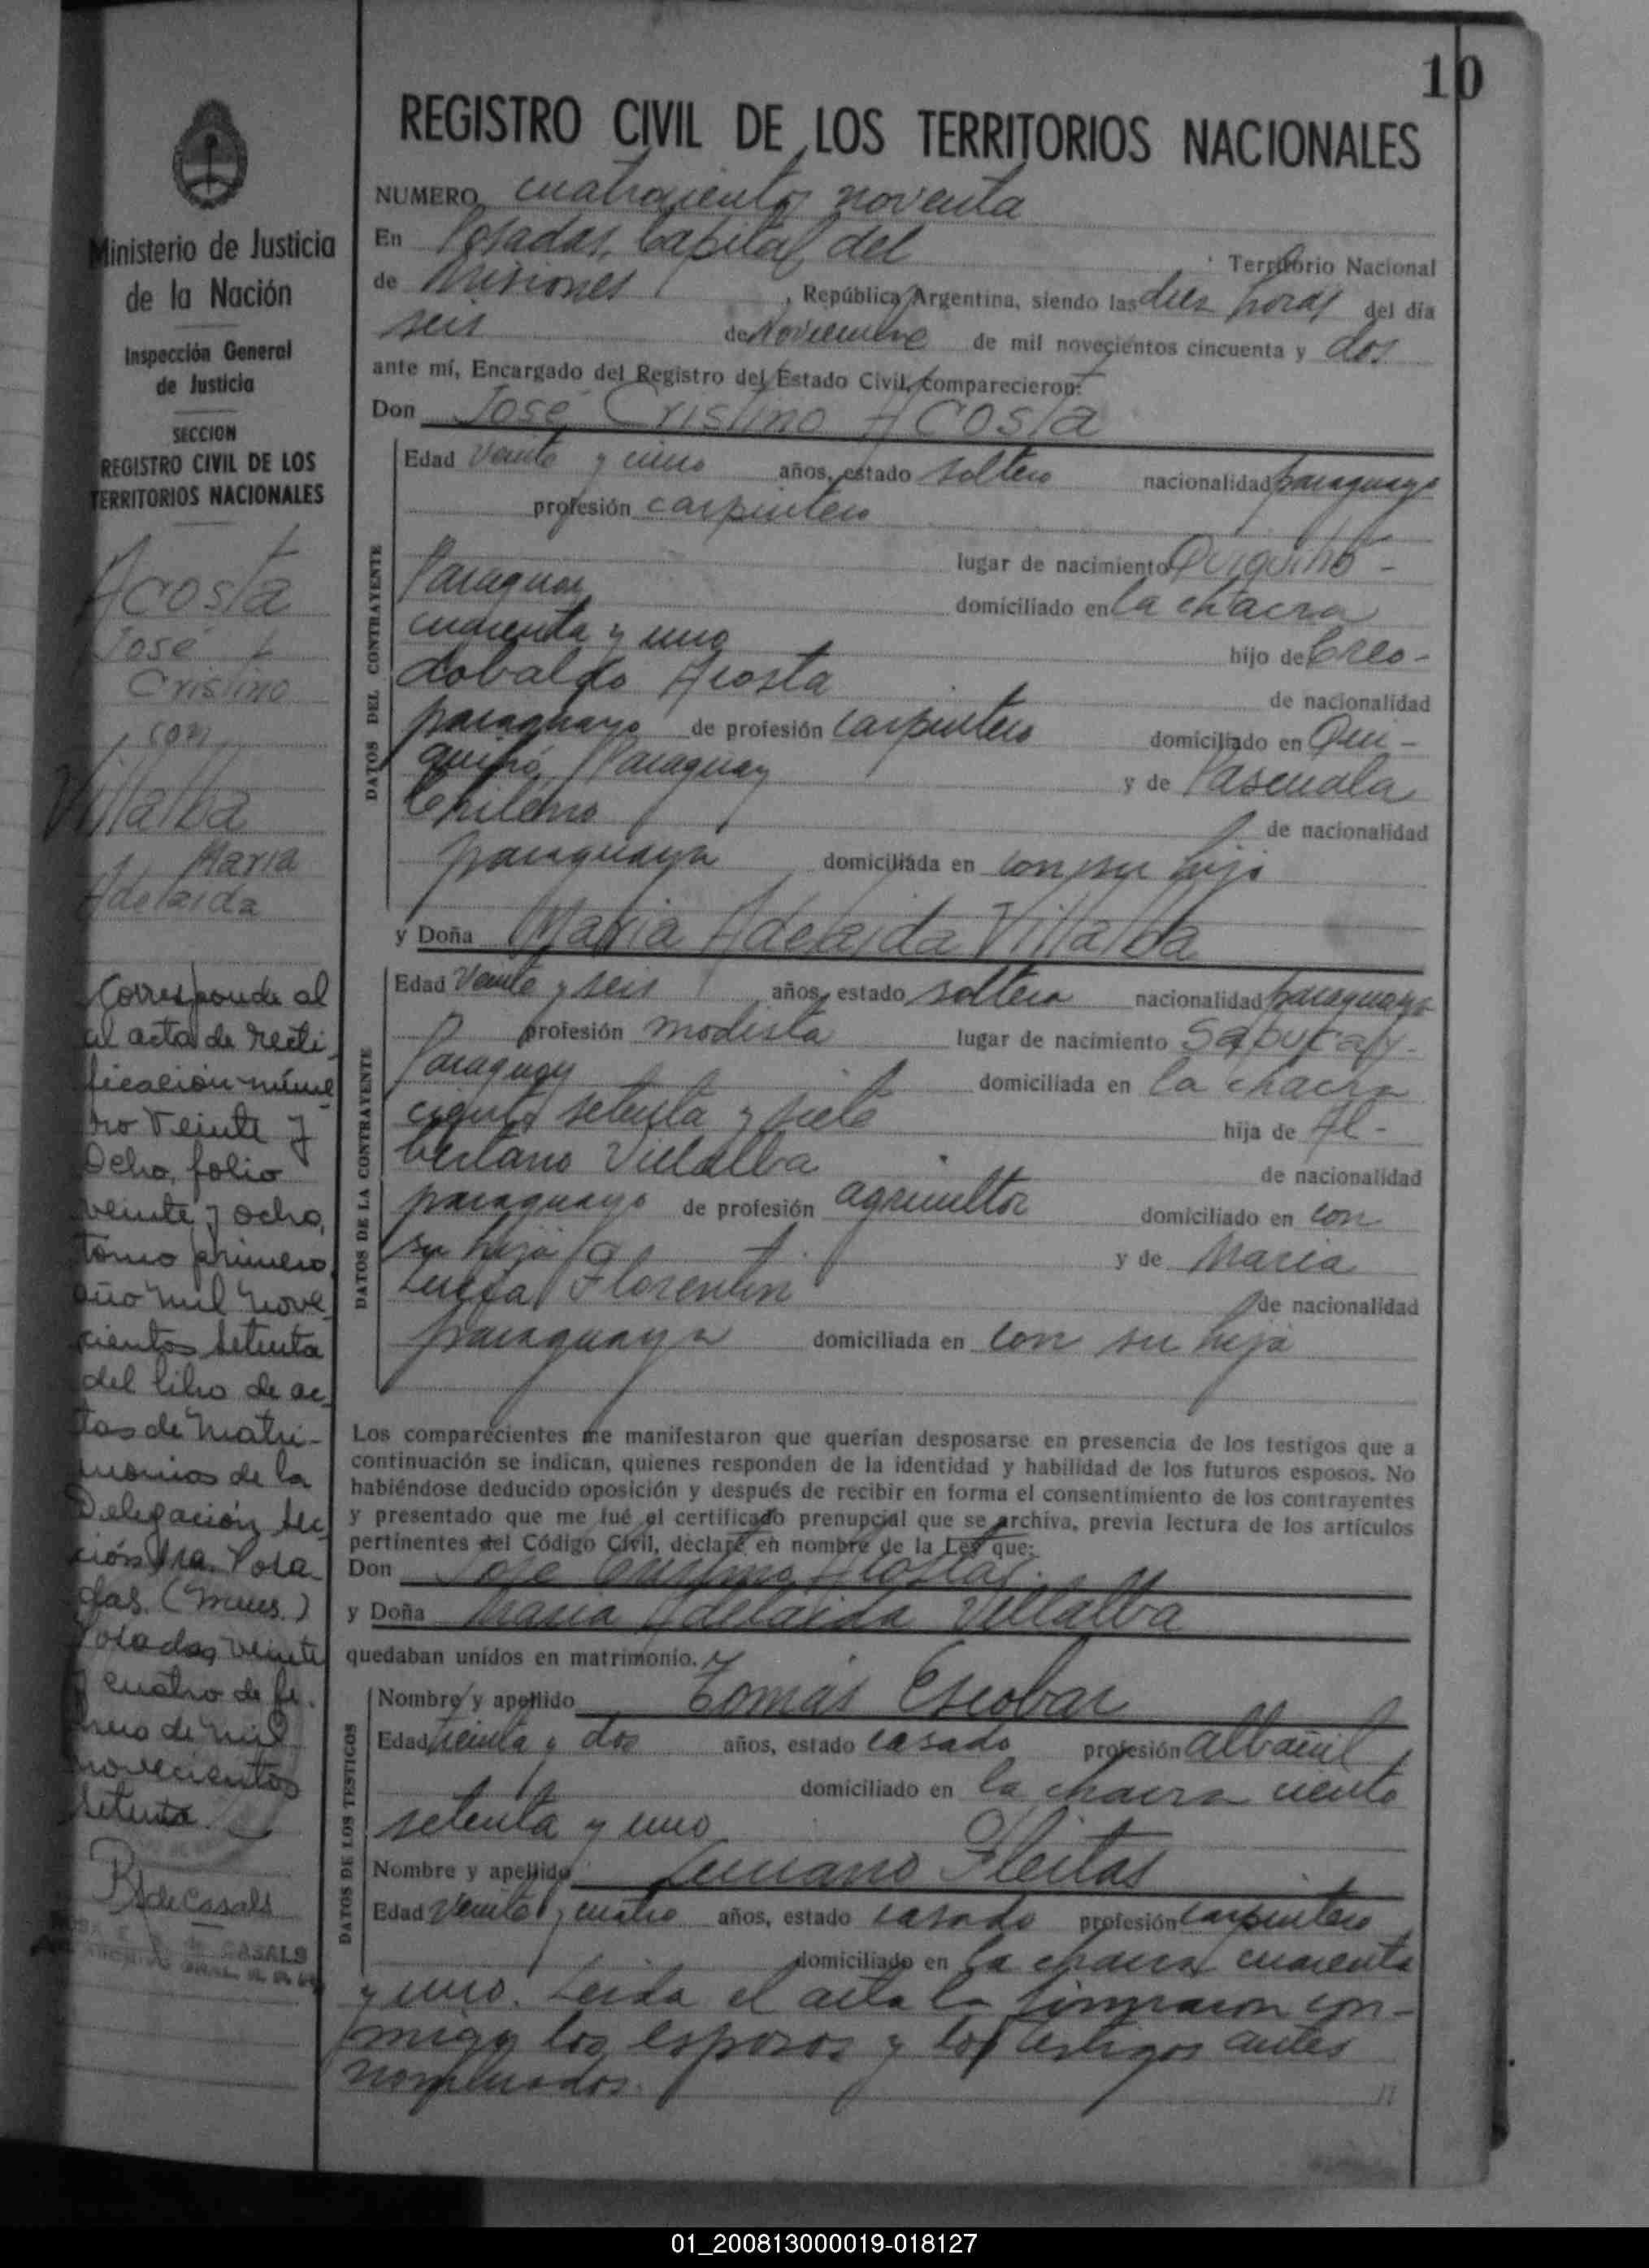 10
REGISTRO CIVIL DE LOS TERRITORIOS NACIONALES
Ministerio de Justicia
de la Nación
Inspección General
de Justicia
SECCION
REGISTRO CIVIL DE LOS
TERRITORIOS NACIONALES
Acosta
José
Cristino
con
Villalba
María
Adelaida
Corresponde al
al acta de recti-
ficación núme
ro veinte y
Ocho, folio
veinte y ocho,
tomo primero
año mil nove
cientos setenta
del libro de ac
tas de matri-
monios de la
Delegación Sec
ción 1ra. Posa
das. (Mnes.)
Posadas veinte
y cuatro de fe
brero de mil
novecientos
setenta
R de Casals
CASALS
NUMERO cuatrocientos noventa
En Posadas, Capital del Territorio Nacional
de Misiones, República Argentina, siendo las diez horas del día
seis de Noviembre de mil novecientos cincuenta y dos
ante mí, Encargado del Registro del Estado Civil, comparecieron:
Don José Cristino Acosta
DATOS DEL CONTRAYENTE
Edad veinte y cinco años, estado soltero nacionalidad paraguayo
profesión carpintero
lugar de nacimiento Quiquihó -
Paraguay domiciliado en la chacra
cuarenta y uno hijo de Creo-
dobaldo Acosta de nacionalidad
paraguayo de profesión carpintero domiciliado en Qui -
quihó, Paraguay y de Pascuala
Chileno de nacionalidad
paraguaya domiciliada en con su hijo
y Doña María Adelaida Villalba
DATOS DE LA CONTRAYENTE
Edad veinte y seis años, estado soltera nacionalidad paraguaya
profesión modista lugar de nacimiento Sapucay-
Paraguay domiciliada en la chacra
ciento setenta y siete hija de Al-
bertano Villalba de nacionalidad
paraguayo de profesión agricultor domiciliado en con
su hija y de María
Lucía Florentín de nacionalidad
paraguaya domiciliada en con su hija
Los comparecientes me manifestaron que querían desposarse en presencia de los testigos que a
continuación se indican, quienes responden de la identidad y habilidad de los futuros esposos. No
habiéndose deducido oposición y después de recibir en forma el consentimiento de los contrayentes
y presentado que me fué el certificado prenupcial que se archiva, previa lectura de los artículos
pertinentes del Código Civil, declaré en nombre de la Ley que:
Don José Cristino Acosta
y Doña María Adelaida Villalba
quedaban unidos en matrimonio.
DATOS DE LOS TESTIGOS
Nombre y apellido Tomás Escobar
Edad treinta y dos años, estado casado profesión albañil
domiciliado en la chacra ciento
setenta y uno
Nombre y apellido Luciano Fleitas
Edad veinte y cuatro años, estado casado profesión carpintero
domiciliado en la chacra cuarenta
y uno. Leída el acta la firmaron con-
migo los esposos y los testigos antes
nombrados.
01_200813000019-018127